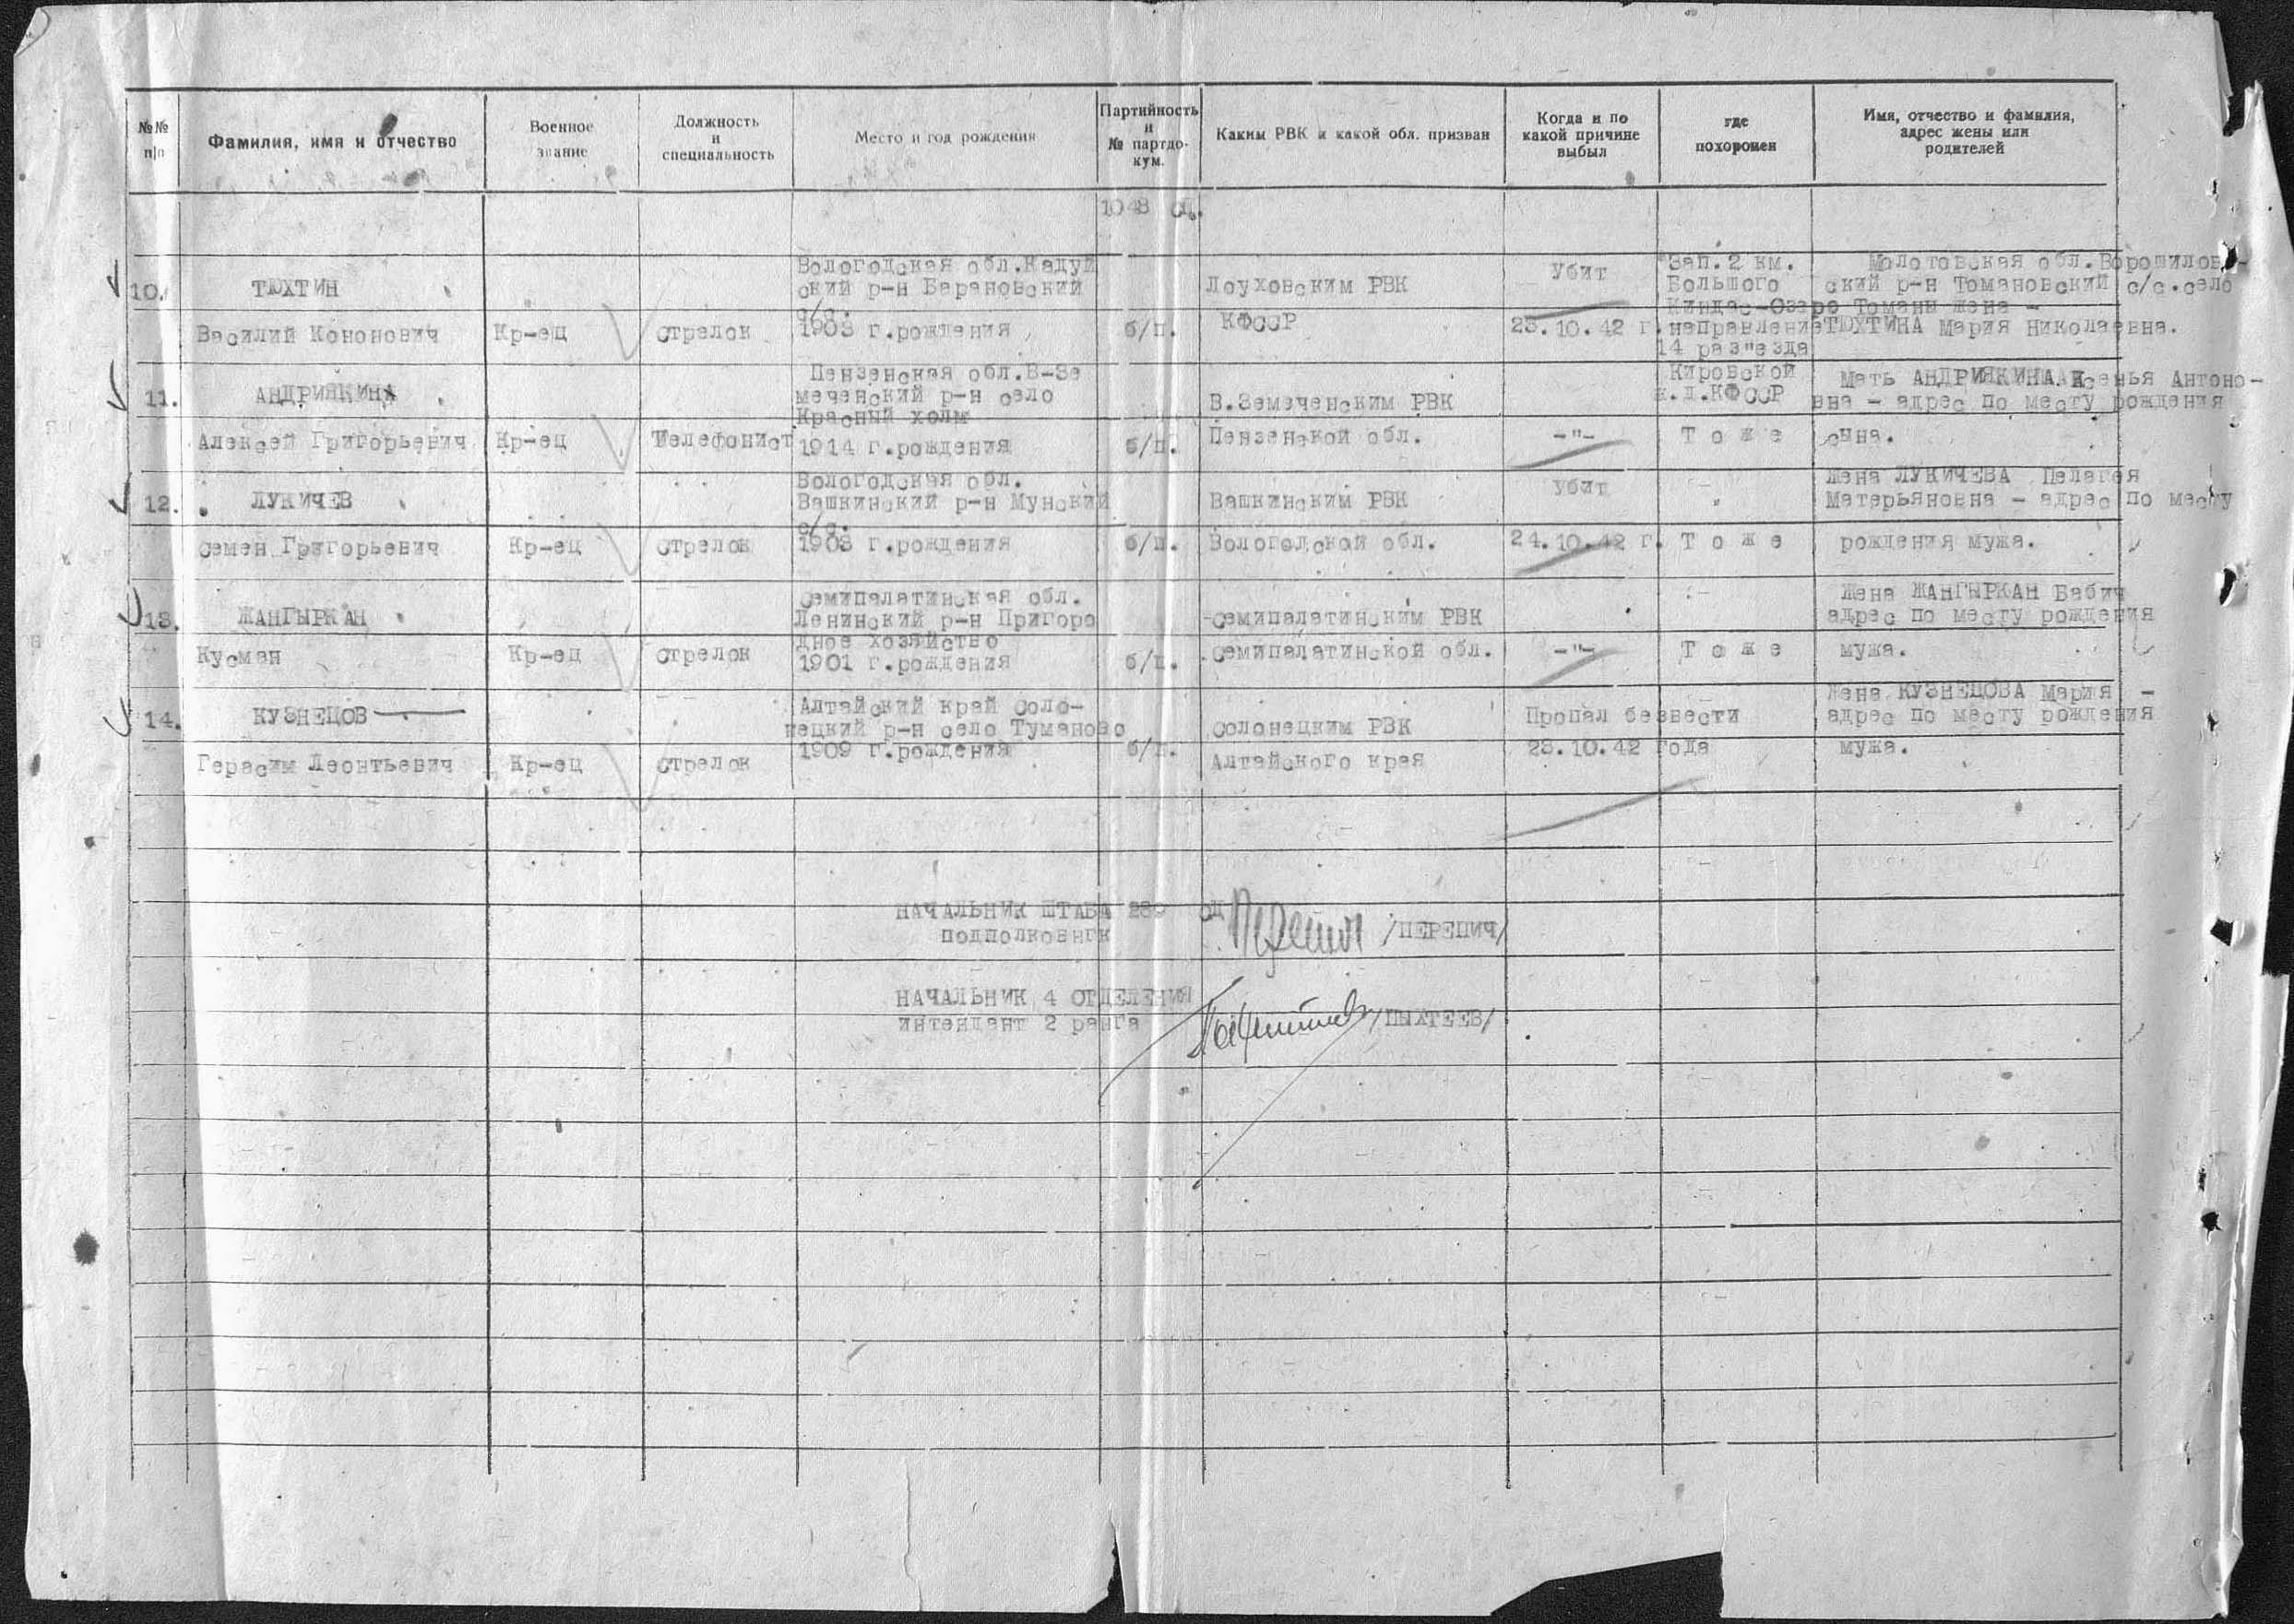 №№ п/п
Фамилия, имя и отчество
Военное звание
Должность и специальность
Место и год рождения
Партийность и № партдо-кум.
Каким РВК и какой обл. призван
Когда и по какой причине выбыл
где похоронен
Имя, отчество и фамилия, адрес жены или родителей
1048 сп.
10. ТЮХТИН
Василий Кононович
Кр-ец
стрелок
Вологодская обл.Кадуй
ский р-н Барановский
с/с.
1903 г.рождения
б/п.
Лоуховским РВК
КФССР
Убит
23.10.42 г.
Зап.2 км.
Большого
Киндас-Озеро
направление
14 раз"езда
Кировской
ж.д.КФССР
Молотовская обл.Ворошилов-
ский р-н Томановский с/с.село
Томаны жена -
ТЮХТИНА Мария Николаевна.
11. АНДРИЯКИН
Алексей Григорьевич
Кр-ец
Телефонист
Пензенская обл.В-Зе
меченский р-н село
Красный холм
1914 г.рождения
б/п.
В.Земеченским РВК
Пензенской обл.
-"-
Т о ж е
Мать АНДРИЯКИНА Ксенья Антоно-
вна - адрес по месту рождения
сына.
12. ЛУКИЧЕВ
Семен Григорьевич
Кр-ец
стрелок
Вологодская обл.
Вашкинский р-н Мунский
с/с.
1903 г.рождения
б/п.
Вашкинским РВК
Вологодской обл.
Убит
24.10.42 г.
Т о ж е
Жена ЛУКИЧЕВА Пелагея
Матерьяновна - адрес по месту
рождения мужа.
13. ЖАНГЫРКАН
Кусман
Кр-ец
стрелок
Семипалатинская обл.
Ленинский р-н Пригоро
дное хозяйство
1901 г.рождения
б/п.
Семипалатинским РВК
Семипалатинской обл.
-"-
Т о ж е
Жена ЖАНГЫРКАН Бабич
адрес по месту рождения
мужа.
14. КУЗНЕЦОВ
Герасим Леонтьевич
Кр-ец
стрелок
Алтайский край Соло-
нецкий р-н село Туманово
1909 г.рождения
б/п.
Солонецким РВК
Алтайского края
Пропал безвести
23.10.42 года
Жена КУЗНЕЦОВА Мария -
адрес по месту рождения
мужа.
НАЧАЛЬНИК ШТАБА 289 СД
подполковник /ПЕРЕПИЧ/
НАЧАЛЬНИК 4 ОТДЕЛЕНИЯ
интендант 2 ранга /ПЫХТЕЕВ/